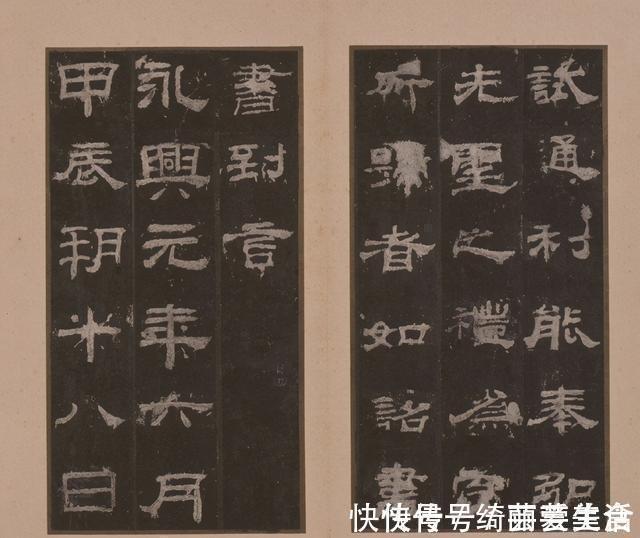 試通利能奉弘
先聖之禮為宗
所歸者如詔書
書到言
永興元年六月
甲辰朔十八日
快传号